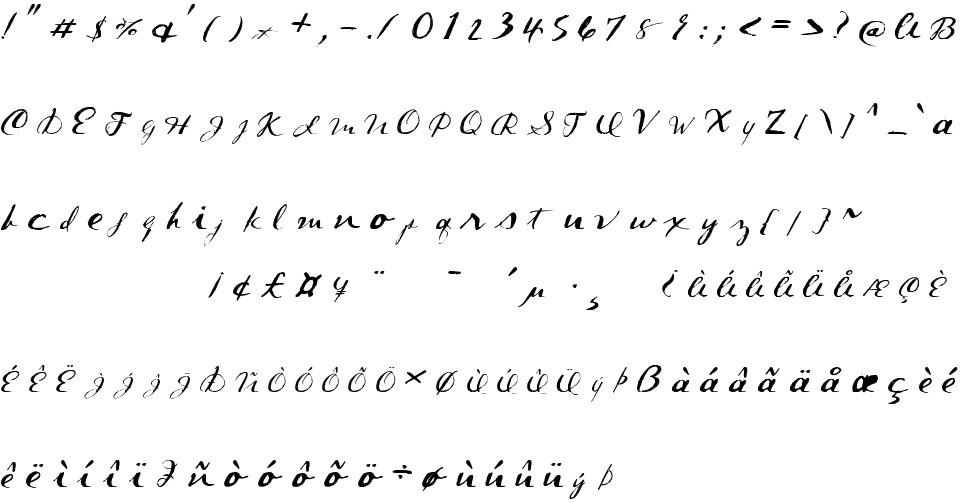 ! " # $ % & ' ( ) * + , - . / 0 1 2 3 4 5 6 7 8 9 : ; < = > ? @ A B
C D E F G H I J K L M N O P Q R S T U V W X Y Z [ \ ] ^ _ ` a
b c d e f g h i j k l m n o p q r s t u v w x y z { | } ~
¡ ¢ £ ¤ ¥ ¨ ¯ ´ µ · ¸ ¿ À Á Â Ã Ä Å Æ Ç È
É Ê Ë Ì Í Î Ï Ð Ñ Ò Ó Ô Õ Ö × Ø Ù Ú Û Ü Ý Þ ß à á â ã ä å æ ç è é
ê ë ì í î ï ð ñ ò ó ô õ ö ÷ ø ù ú û ü ý þ